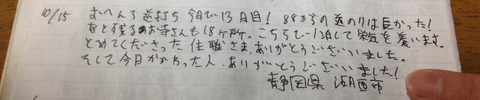 10/15 おへんろ逆打ち 今日で13日目! 88か所の道のりは長かった!
あと残るお寺さんも18ヶ所。こちらで一泊して栄気を養います。
とめてくださった住職さまありがとうございました。
そして今日かかわった人、ありがとうございました!
静岡県 湖西市